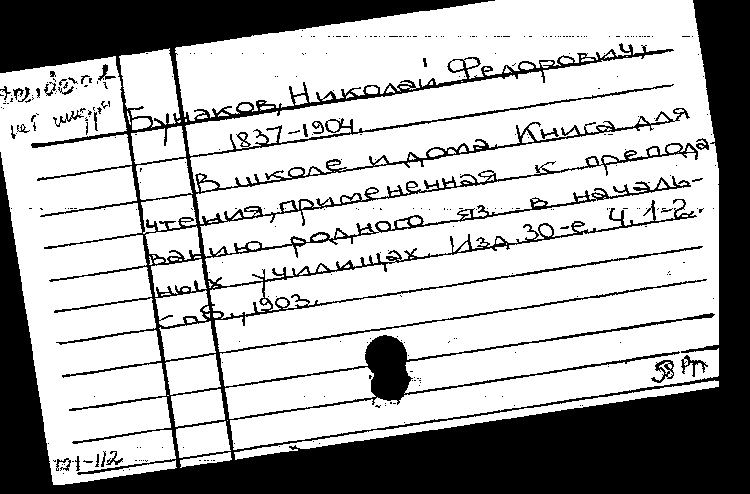 нет шифра
Бунаков, Николай Федорович,
1837-1904.
В школе и дома. Книга для
чтения, примененная к препода
ванию родного яз. в началь-
ных училищах. Изд. 30-е. Ч. 1-2.
Спб., 1903.
58 Рп
121-112